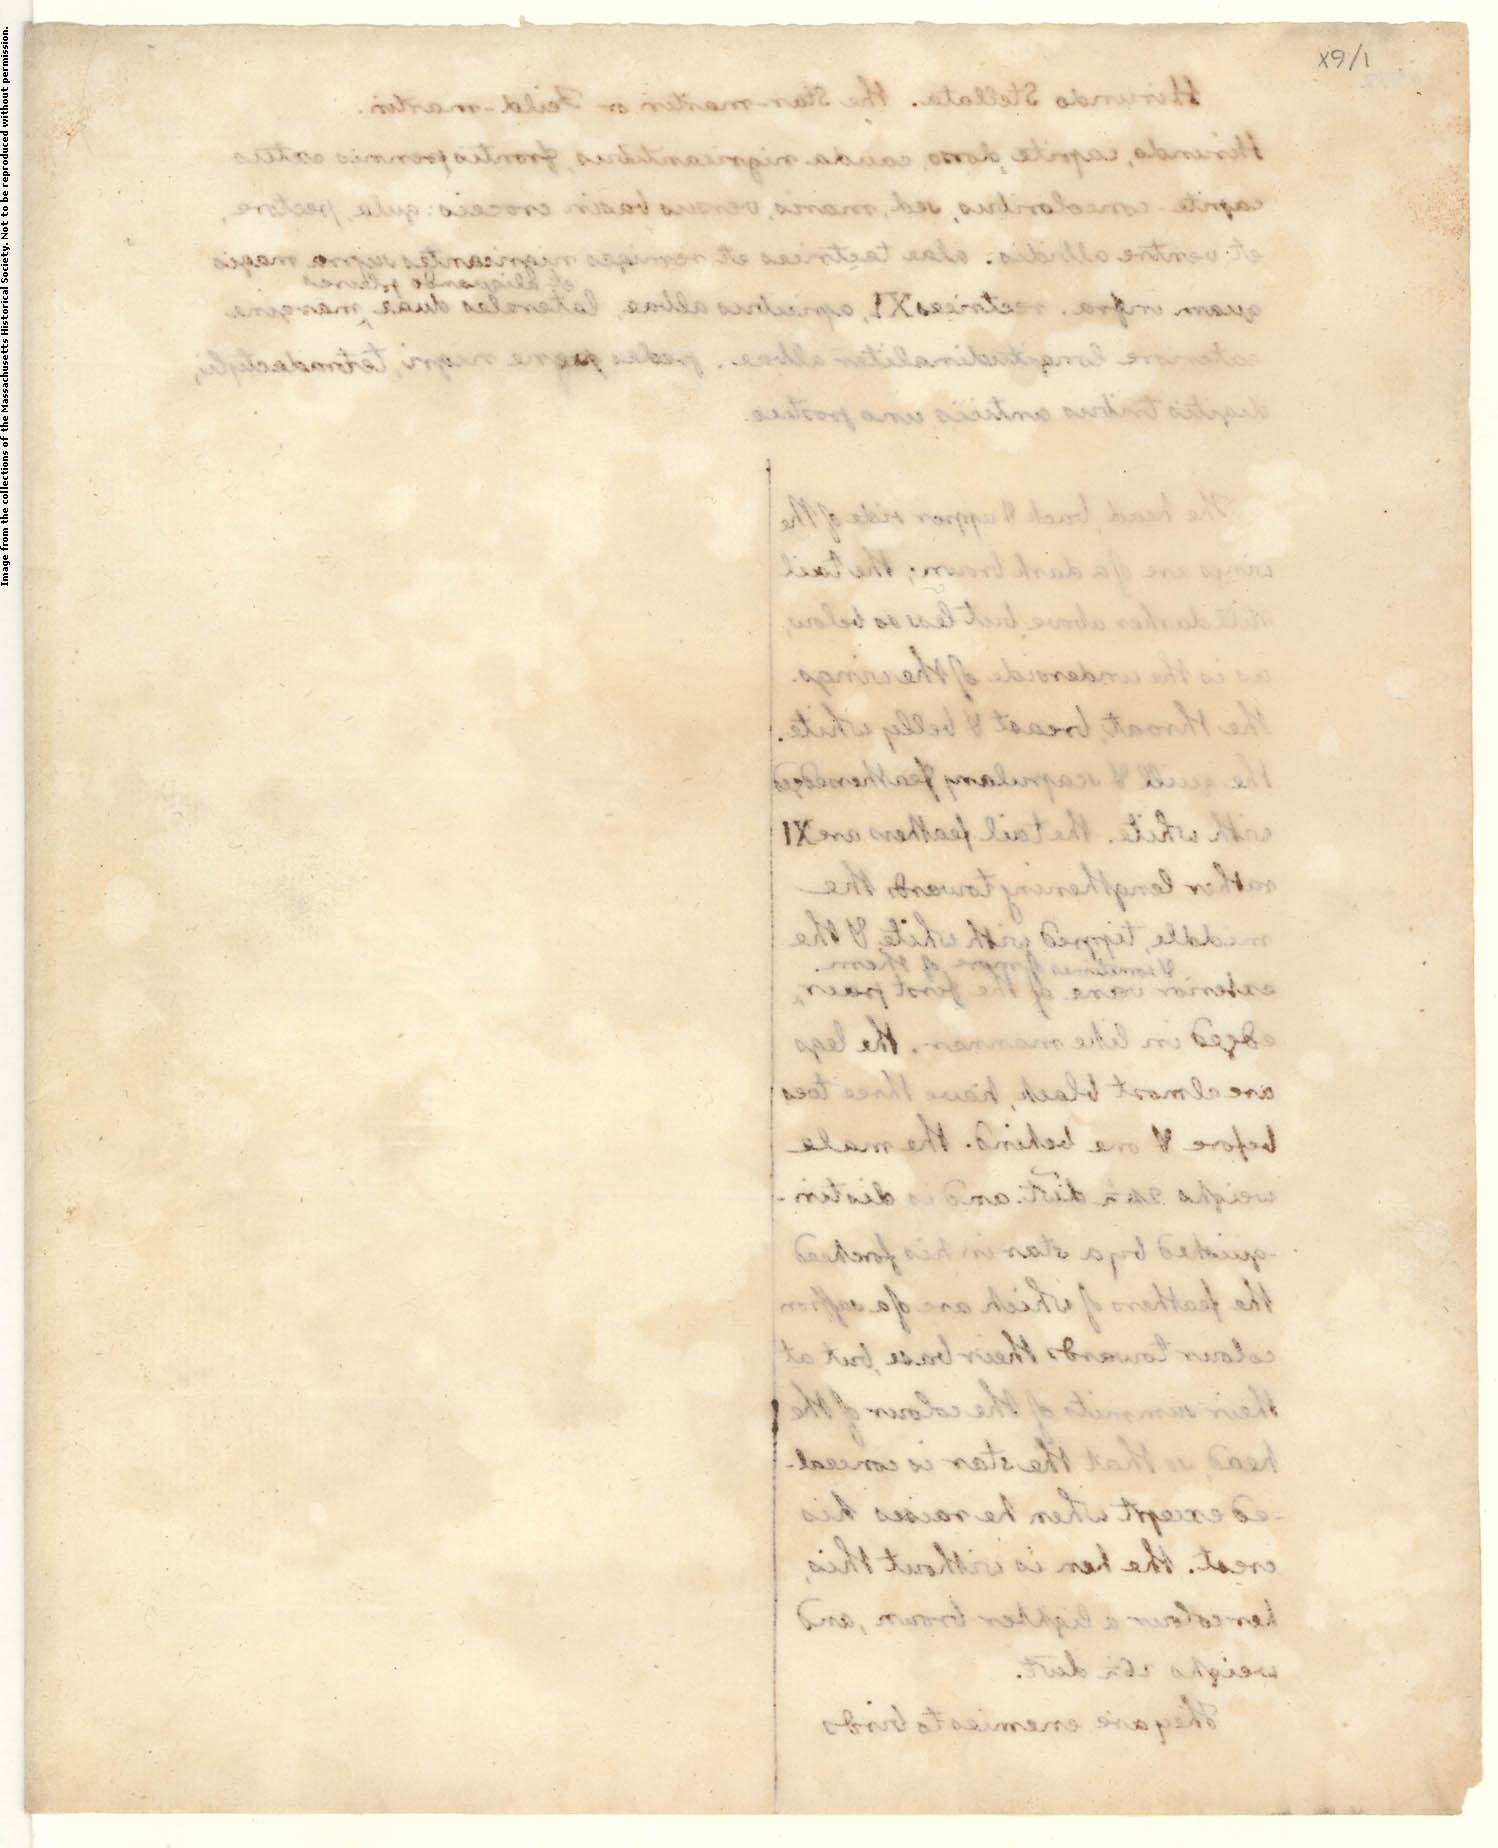 Image from the collections of the Massachusetts Historical Society. Not to be reproduced without permission.
1/9x
Hirundo Stellata. the Star-martin or Feild-martin.
Hirundo, capite, dorso, cauda nigricantibus, frontis pennis
capite concoloribus, sed, maris, versus basin croceis: gula, pectore,
et ventre albidis. alae tectrices et remiges nigricantes supra magis
et aliquando plures
quam infra. rectrices XI, apicibus albae, laterales duae, margine
longitudinaliter albae. pedes pene nigri, tetradactyli,
digitis tribus anticis uno postico.
The head, back & upper side of the
wings are of a dark brown; the tail
still darker above, but less so below,
as is the underside of the wings.
the throat, breast & belly white.
the quill & scapulary feathers edged
with white. the tail feathers are XI
rather lengthening towards the
middle, tipped with white, & the
& sometimes of more of them.
exterior vane of the first pair,
edged in like manner. the legs
are almost black, have three toes
before & one behind. the male
weighs dwt. and is distin-
-guished by a star in his forehead
the feathers of which are of a saffron
colour towards their base, but at
their summits of the colour of the
head, so that the star is conceal-
-ed except when he raises his
crest. the hen is without this,
her colour a lighter brown, and
weighs dwt.
They are enemies to birds